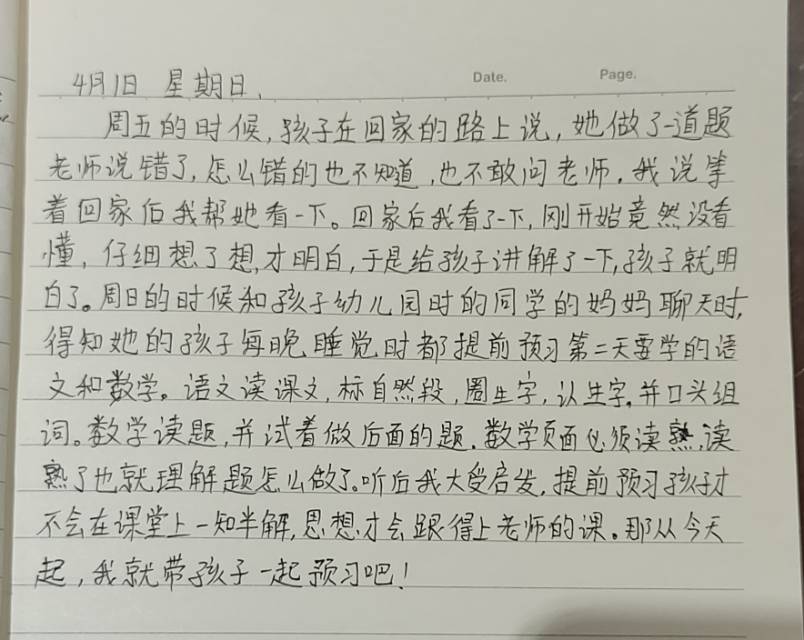 Date. Page.
4月1日 星期日.
周五的时候,孩子在回家的路上说,她做了一道题
老师说错了,怎么错的也不知道,也不敢问老师。我说等
着回家后我帮她看一下。回家后我看了一下,刚开始竟然没看
懂,仔细想了想,才明白,于是给孩子讲解了一下,孩子就明
白了。周日的时候和孩子幼儿园时的同学的妈妈聊天时,
得知她的孩子每晚睡觉时都提前预习第二天要学的语
文和数学。语文读课文,标自然段,圈生字,认生字,并口头组
词。数学读题,并试着做后面的题,数学页面必须读熟,读
熟了也就理解题怎么做了。听后我大受启发,提前预习孩子才
不会在课堂上一知半解,思想才会跟得上老师的课。那从今天
起,我就带孩子一起预习吧!